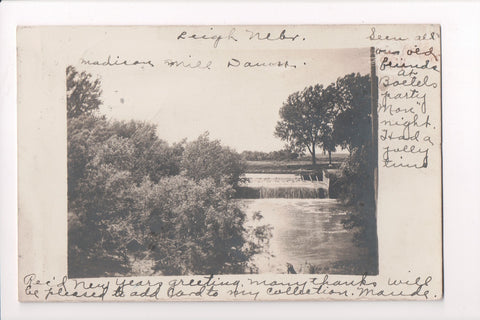 Leigh Nebr.
Madison Mill Dam
Seen all
our old
friends
At
Boetels
party
Mon
night.
Had a
jolly
time
Rec'd New Years greeting. Many thanks Will
be pleased to add Card to my Collection. Maude.